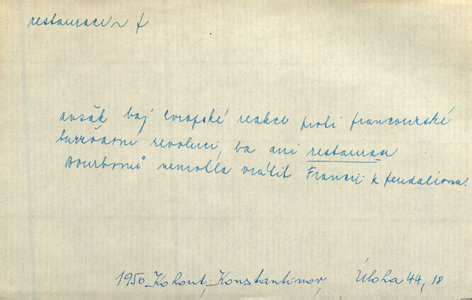 restaurace f
avšak boj evropské reakce proti francouzské
buržoasní revoluci, ba ani restaurace
Bourbonů nemohla vrátit Francii k feudalismu
1950 Kohout, Konstantinov Úloha 44, 18